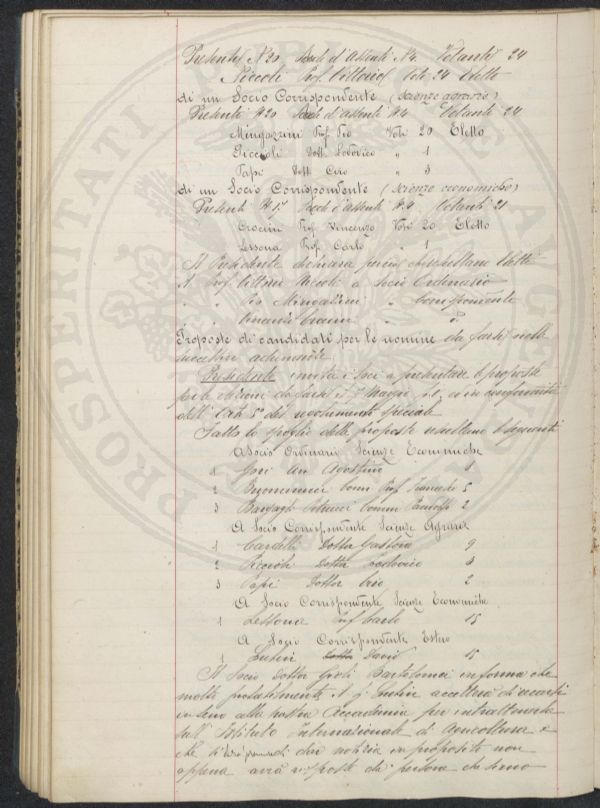 Presenti N. 20 Schede d'assenti N. 4. Votanti 24
Piccoli Prof. Vittorio Voti 24 Eletto
di un Socio Corrispondente (scienze agrarie)
Presenti N. 20 Schede d'assenti N. 4 Votanti 24
Mingazzini Prof. Pio Voti 20 Eletto
Piccioli Dott. Lodovico " 1
Papi Dott. Ciro " 3
di un Socio Corrispondente (scienze economiche)
Presenti N. 17 Schede d'assenti N. 4 Votanti 21
Crocini Prof. Vincenzo Voti 20 Eletto
Lessona Prof. Carlo " 1
Il Presidente dichiara perciò che risultano eletti
Il Prof. Vittorio Piccoli a Socio Ordinario
" " Pio Mingazzini " Corrispondente
" " Crocini "
Proposte di candidati per le nomine da farsi nelle
successive adunanze
Presidente invita i soci a presentare le proposte
per le elezioni da farsi il Maggio p.v. in conformità
dell'Art. 5° del regolamento speciale
Fatto lo spoglio delle proposte resultano le seguenti
A Socio Ordinario Scienze Economiche
Gori Avv. Agostino 8
2 Comm. Prof. Francesco 5
3 Bargagli Petrucci Comm. Pandolfo 2
A Socio Corrispondente Scienze Agrarie
1 Dottor Gastone 9
2 Piccioli Dottor Lodovico 3
3 Papi Dottor Ciro 2
A Socio Corrispondente Scienze Economiche
1 Lessona Prof. Carlo 15
A Socio Corrispondente Estero
1 Lubin Dottor David 15
Il Socio Dottor Gioli Bartolomei informa che
molto probabilmente il S. Lubin accetterà di recarsi
in seno alla nostra Accademia per intrattenerla
sull'Istituto Internazionale d'Agricoltura e
che si dar notizia in proposito non
appena avrà risposte da persona che sono